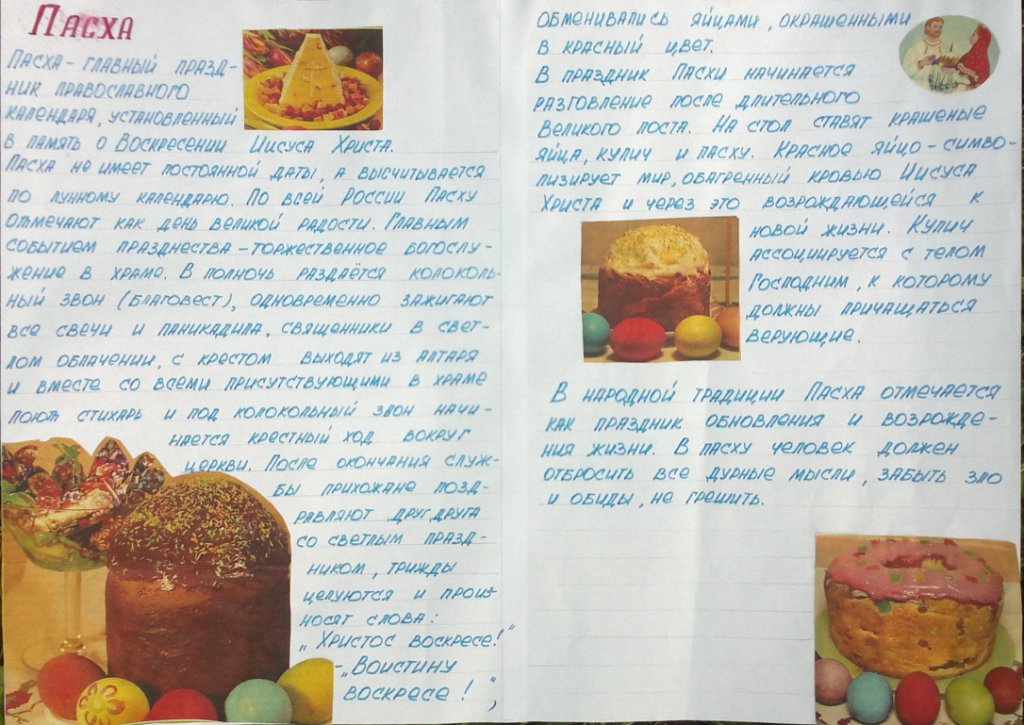 Пасха
Пасха - главный празд-
ник православного
календаря, установленный
в память о Воскресении Иисуса Христа.
Пасха не имеет постоянной даты, а высчитывается
по лунному календарю. По всей России Пасху
отмечают как день великой радости. Главным
событием празднества - торжественное богослу-
жение в храме. В полночь раздаётся колоколь-
ный звон (благовест), одновременно зажигают
все свечи и паникадила, священники в свет-
лом облачении, с крестом выходят из алтаря
и вместе со всеми присутствующими в храме
поют стихарь и под колокольный звон начи-
нается крестный ход вокруг
церкви. После окончания служ-
бы прихожане позд-
равляют друг друга
со светлым празд-
ником, трижды
целуются и произ-
носят слова:
„Христос воскресе!"
- „Воистину
воскресе!",
обменивались яйцами, окрашенными
в красный цвет.
В праздник Пасхи начинается
разговление после длительного
Великого поста. На стол ставят крашеные
яйца, кулич и пасху. Красное яйцо - симво-
лизирует мир, обагренный кровью Иисуса
Христа и через это возрождающейся к
новой жизни. Кулич
ассоциируется с телом
Господним, к которому
должны причащаться
верующие.
В народной традиции Пасха отмечается
как праздник обновления и возрожде-
ния жизни. В пасху человек должен
отбросить все дурные мысли, забыть зло
и обиды, не грешить.